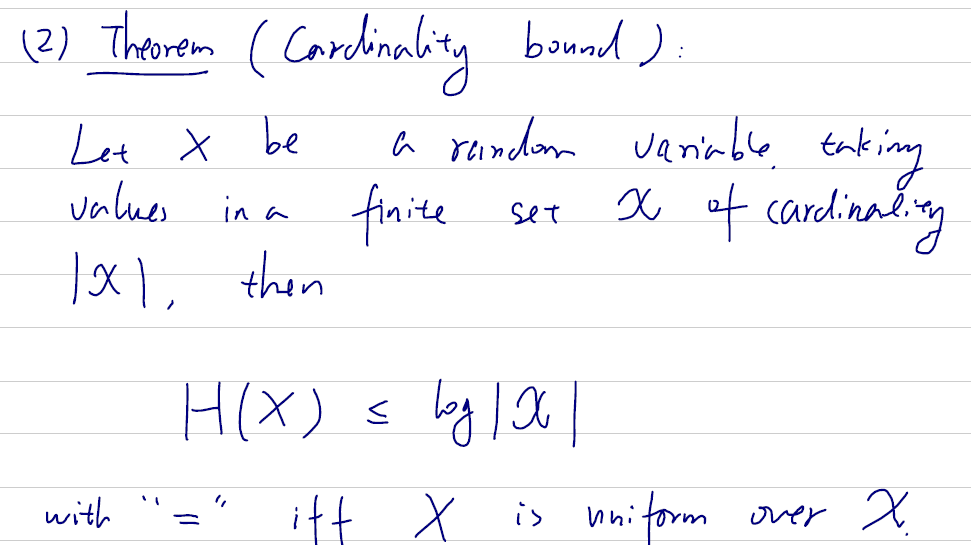 (2) Theorem (Cardinality bound):
Let X be a random variable taking
values in a finite set 𝒳 of cardinality
|𝒳|, then
H(X) ≤ log |𝒳|
with "=" iff X is uniform over 𝒳.